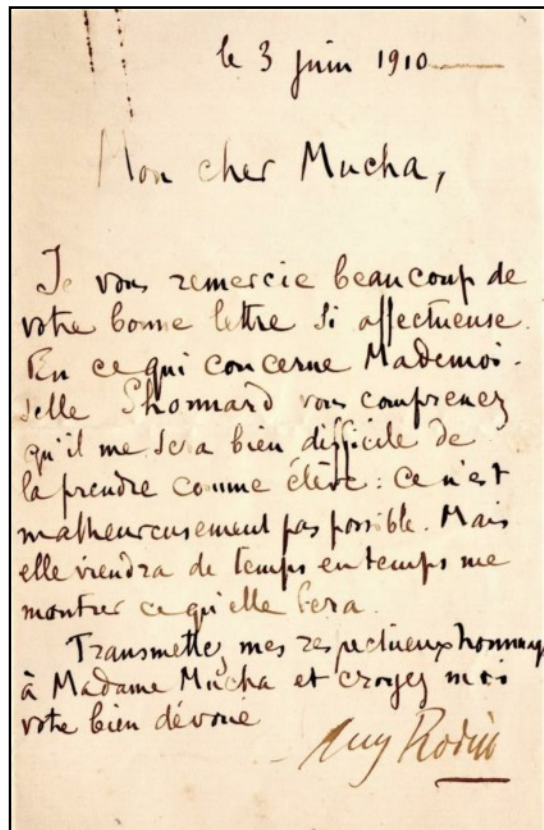 le 3 juin 1910
Mon cher Mucha,
Je vous remercie beaucoup de
votre bonne lettre si affectueuse.
En ce qui concerne Mademoi-
selle Shonnard vous comprenez
qu'il me sera bien difficile de
la prendre comme élève : ce n'est
malheureusement pas possible. Mais
elle viendra de temps en temps me
montrer ce qu'elle fera.
Transmettez mes respectueux hommag
à Madame Mucha et croyez moi
votre bien dévoué
Aug Rodin